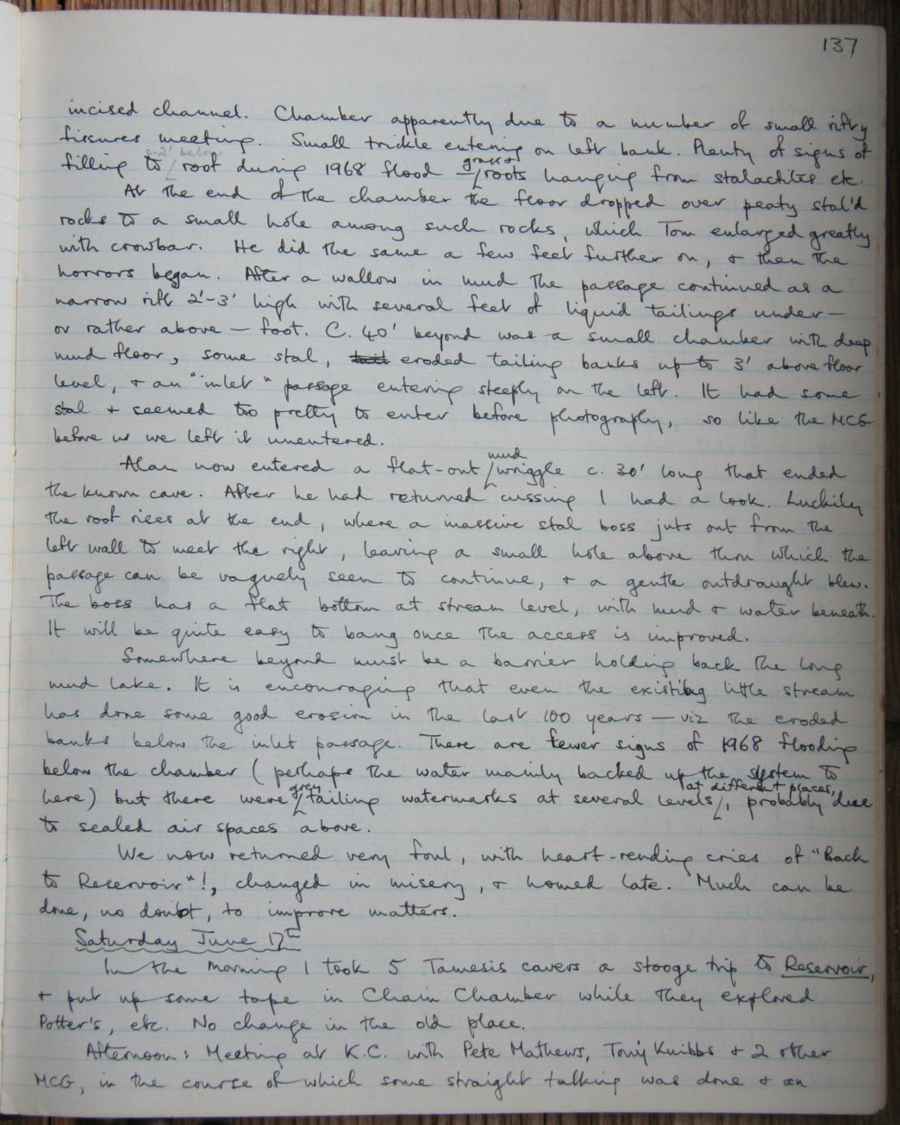 137
incised channel. Chamber apparently due to a number of small rifty
fissures meeting. Small trickle entering on left bank. Plenty of signs of
filling to 1'-2' below roof during 1968 flood – grass or roots hanging from stalactites etc.
At the end of the chamber the floor dropped over peaty stal'd
rocks to a small hole among such rocks, which Tom enlarged greatly
with crowbar. He did the same a few feet further on, & then the
horrors began. After a wallow in mud the passage continued as a
narrow rift 2'-3' high with several feet of liquid tailings under –
or rather above – foot. C. 40' beyond was a small chamber with deep
mud floor, some stal, eroded tailing banks up to 3' above floor
level, & an "inlet" passage entering steeply on the left. It had some
stal & seemed too pretty to enter before photography, so like the MCG
before us we left it unentered.
Alan now entered a flat-out mud wriggle c. 30' long that ended
the known cave. After he had returned cussing I had a look. Luckily
the roof rises at the end, where a massive stal boss juts out from the
left wall to meet the right, leaving a small hole above thru which the
passage can be vaguely seen to continue, & a gentle outdraught blew.
The boss has a flat bottom at stream level, with mud & water beneath.
It will be quite easy to bang once the access is improved.
Somewhere beyond must be a barrier holding back the long
mud lake. It is encouraging that even the existing little stream
has done some good erosion in the last 100 years – viz the eroded
banks below the inlet passage. There are fewer signs of 1968 flooding
below the chamber (perhaps the water mainly backed up the system to
here) but there were grey tailing watermarks at several levels at different places, , probably due
to sealed air spaces above.
We now returned very foul, with heart-rending cries of "Back
to Reservoir"!, changed in misery, & homed late. Much can be
done, no doubt, to improve matters.
Saturday June 17th
In the morning I took 5 Tamesis cavers a stooge trip to Reservoir,
& put up some tape in Chain Chamber while they explored
Potter's, etc. No change in the old place.
Afternoon: Meeting at K.C. with Pete Mathews, Tony Knibbs & 2 other
MCG, in the course of which some straight talking was done & an